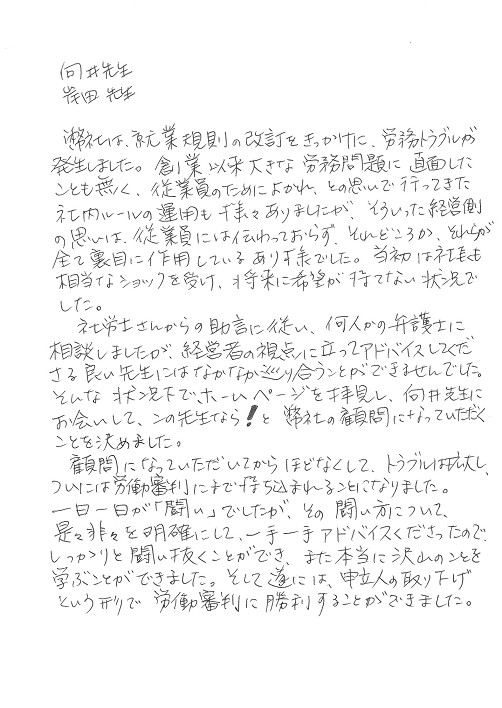 向井先生
岸田 先生
弊社は、就業規則の改訂をきっかけに、労務トラブルが
発生しました。創業以来大きな労務問題に直面した
ことも無く、従業員のためによかれ、との思いで行ってきた
社内ルールの運用も様々ありましたが、そういった経営側
の思いは、従業員には伝わっておらず、それどころか、それらが
全て裏目に作用しているあり様でした。当初は社長も
相当なショックを受け、将来に希望が持てない状況で
した。
社労士さんからの助言に従い、何人かの弁護士に
相談しましたが、経営者の視点に立ってアドバイスしてくだ
さる良い先生にはなかなか巡り合うことができませんでした。
そんな状況下で、ホームページを拝見し、向井先生に
お会いして、この先生なら!と弊社の顧問になっていただく
ことを決めました。
顧問になっていただいてからほどなくして、トラブルは拡大し、
ついには労働審判にまで持ち込まれることになりました。
一日一日が「闘い」でしたが、その闘い方について、
是々非々を明確にして、一手一手アドバイスくださったので、
しっかりと闘い抜くことができ、また本当に沢山のことを
学ぶことができました。そして遂には、申立人の取り下げ
という形で労働審判に勝利することができました。